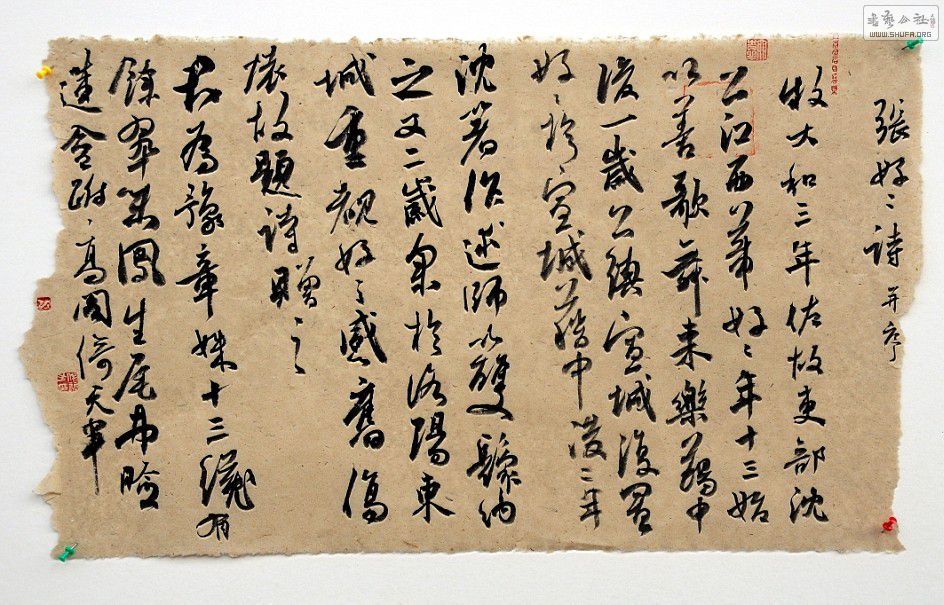 張好〻詩 并序
牧大和三年佐故吏部沈
公江西幕好〻年十三始
以善歌舞来樂籍中
後一歲公鎮宣城復置
好〻於宣城籍中後二年
沈著作述師以雙鬟納
之又二歲余於洛陽東
城重覩好〻感舊傷
懷故題詩贈之
君為豫章姝十三纔有
餘翠茁鳳生尾丹臉
蓮含跗〻高閣倚天半
书艺公社
WWW.SHUFA.ORG